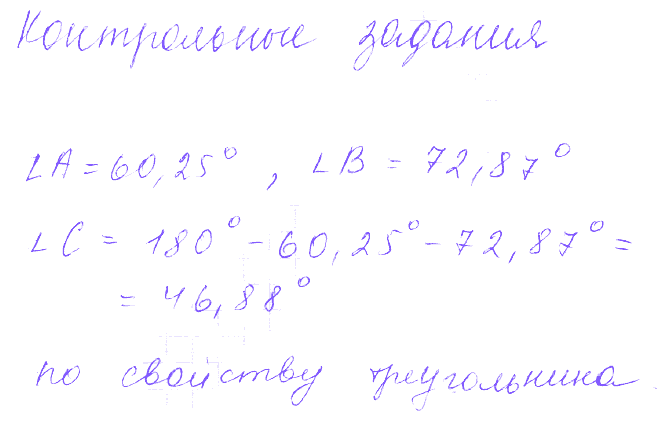 Контрольные задания
∠A = 60,25° , ∠B = 72,87°
∠C = 180° - 60,25° - 72,87° =
= 46,88°
по свойству треугольника